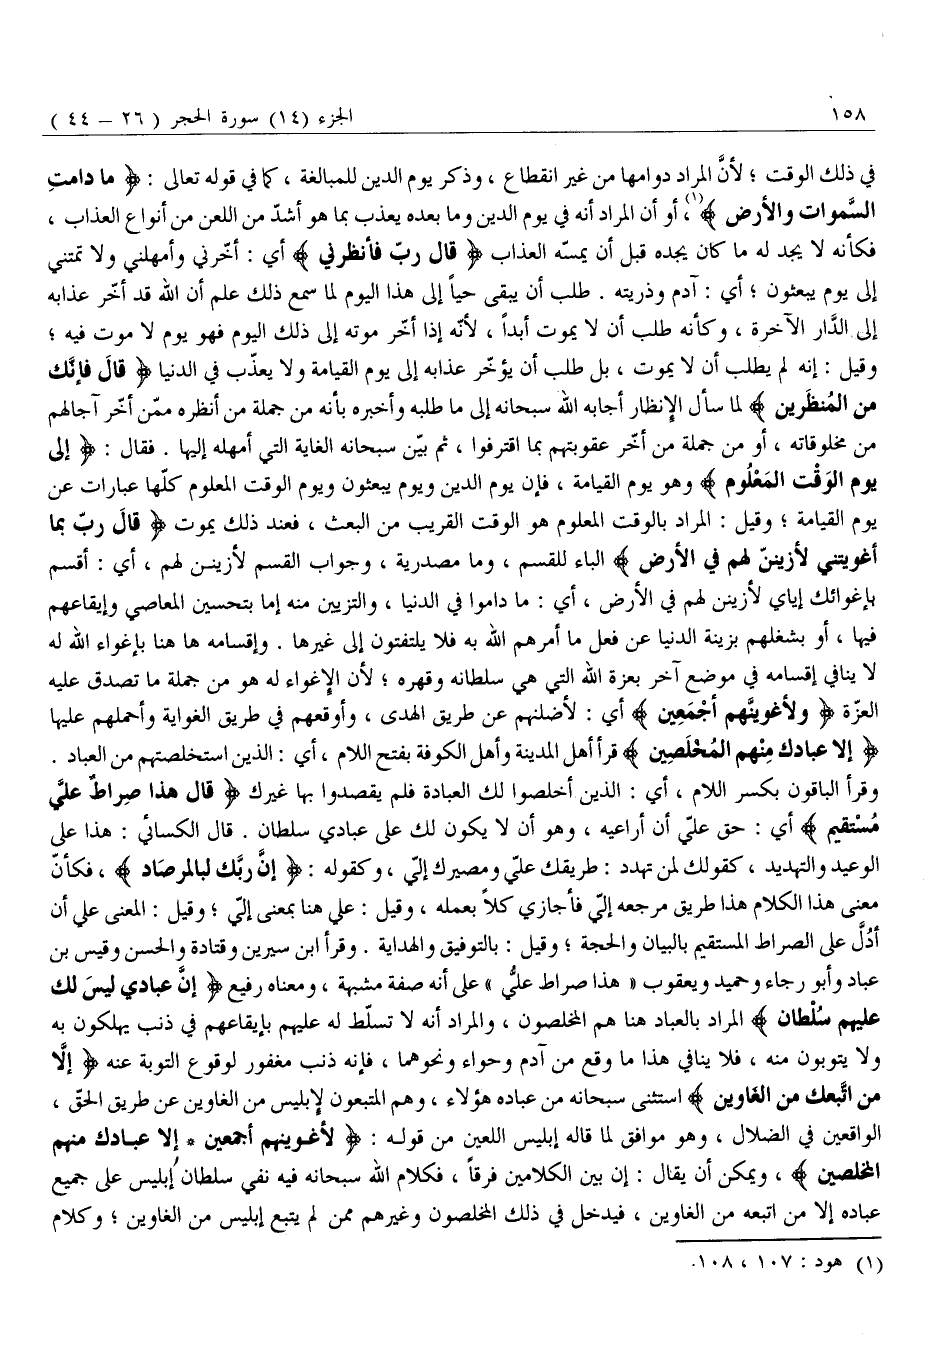 ١٥٨
الجزء (١٤) سورة الحجر ( ٢٦ – ٤٤ )
في ذلك الوقت ؛ لأنَّ المراد دوامها من غير انقطاع ، وذكر يوم الدين للمبالغة ، كما في قوله تعالى : ﴿ ما دامتِ
السَّموات والأرض ﴾(١)، أو أن المراد أنه في يوم الدين وما بعده يعذب بما هو أشدّ من اللعن من أنواع العذاب ،
فكأنه لا يجد له ما كان يجده قبل أن يمسّه العذاب ﴿ قال ربّ فأنظرني ﴾ أي : أخّرني وأمهلني ولا تمتني
إلى يوم يبعثون ؛ أي : آدم وذريته . طلب أن يبقى حياً إلى هذا اليوم لما سمع ذلك علم أن الله قد أخّر عذابه
إلى الدَّار الآخرة ، وكأنه طلب أن لا يموت أبداً ، لأنّه إذا أخّر موته إلى ذلك اليوم فهو يوم لا موت فيه ؛
وقيل : إنه لم يطلب أن لا يموت ، بل طلب أن يؤخّر عذابه إلى يوم القيامة ولا يعذّب في الدنيا ﴿ قالَ فإنَّك
من المُنظَرين ﴾ لما سأل الإنظار أجابه الله سبحانه إلى ما طلبه وأخبره بأنه من جملة من أنظره ممّن أخّر آجالهم
من مخلوقاته ، أو من جملة من أخّر عقوبتهم بما اقترفوا ، ثم بيّن سبحانه الغاية التي أمهله إليها . فقال : ﴿ إلى
يوم الوَقْت المَعْلُوم ﴾ وهو يوم القيامة ، فإن يوم الدين ويوم يبعثون ويوم الوقت المعلوم كلّها عبارات عن
يوم القيامة ؛ وقيل : المراد بالوقت المعلوم هو الوقت القريب من البعث ، فعند ذلك يموت ﴿ قالَ ربّ بما
أغويتني لأزيننّ لهم في الأرض ﴾ الباء للقسم ، وما مصدرية ، وجواب القسم لأزينـن لهم ، أي : أقسم
بإغوائك إياي لأزينن لهم في الأرض ، أي : ما داموا في الدنيا ، والتزيين منه إما بتحسين المعاصي وإيقاعهم
فيها ، أو بشغلهم بزينة الدنيا عن فعل ما أمرهم الله به فلا يلتفتون إلى غيرها . وإقسامه ها هنا بإغواء الله له
لا ينافي إقسامه في موضع آخر بعزة الله التي هي سلطانه وقهره ؛ لأن الإغواء له هو من جملة ما تصدق عليه
العزّة ﴿ ولأغوينَّهم أجْمَعِين ﴾ أي : لأضلنهم عن طريق الهدى ، وأوقعهم في طريق الغواية وأحملهم عليها
﴿ إلا عبادك مِنْهم المُخْلَصِين ﴾ قرأ أهل المدينة وأهل الكوفة بفتح اللام ، أي : الذين استخلصتهم من العباد .
وقرأ الباقون بكسر اللام ، أي : الذين أخلصوا لك العبادة فلم يقصدوا بها غيرك ﴿ قال هذا صِراطٌ عليَّ
مُسْتقيم ﴾ أي : حق عليّ أن أراعيه ، وهو أن لا يكون لك على عبادي سلطان . قال الكسائي : هذا على
الوعيد والتهديد ، كقولك لمن تهدد : طريقك عليّ ومصيرك إليّ ، وكقوله : ﴿ إنَّ ربَّك لبالمرصَاد ﴾ ، فكأنّ
معنى هذا الكلام هذا طريق مرجعه إليّ فأجازي كلاً بعمله ، وقيل : على هنا بمعنى إليّ ؛ وقيل : المعنى علي أن
أدُلَّ على الصراط المستقيم بالبيان والحجة ؛ وقيل : بالتوفيق والهداية . وقرأ ابن سيرين وقتادة والحسن وقيس بن
عباد وأبو رجاء وحميد ويعقوب « هذا صراط عليٌّ » على أنه صفة مشبهة ، ومعناه رفيع ﴿ إنَّ عبادي ليسَ لك
عليهم سُلْطان ﴾ المراد بالعباد هنا هم المخلصون ، والمراد أنه لا تسلّط له عليهم بإيقاعهم في ذنب يهلكون به
ولا يتوبون منه ، فلا ينافي هذا ما وقع من آدم وحواء ونحوهما ، فإنه ذنب مغفور لوقوع التوبة عنه ﴿ إلَّا
من اتَّبعك من الغَاوين ﴾ استثنى سبحانه من عباده هؤلاء ، وهم المتبعون لإبليس من الغاوين عن طريق الحقّ ،
الواقعين في الضلال ، وهو موافق لما قاله إبليس اللعين من قوله : ﴿ لأغوينهم أجمعين * إلا عبادك منهم
المخلصين ﴾ ، ويمكن أن يقال : إن بين الكلامين فرقاً ، فكلام الله سبحانه فيه نفي سلطان إبليس على جميع
عباده إلا من اتبعه من الغاوين ، فيدخل في ذلك المخلصون وغيرهم ممن لم يتبع إبليس من الغاوين ؛ وكلام
(١) هود : ١٠٧ ، ١٠٨.